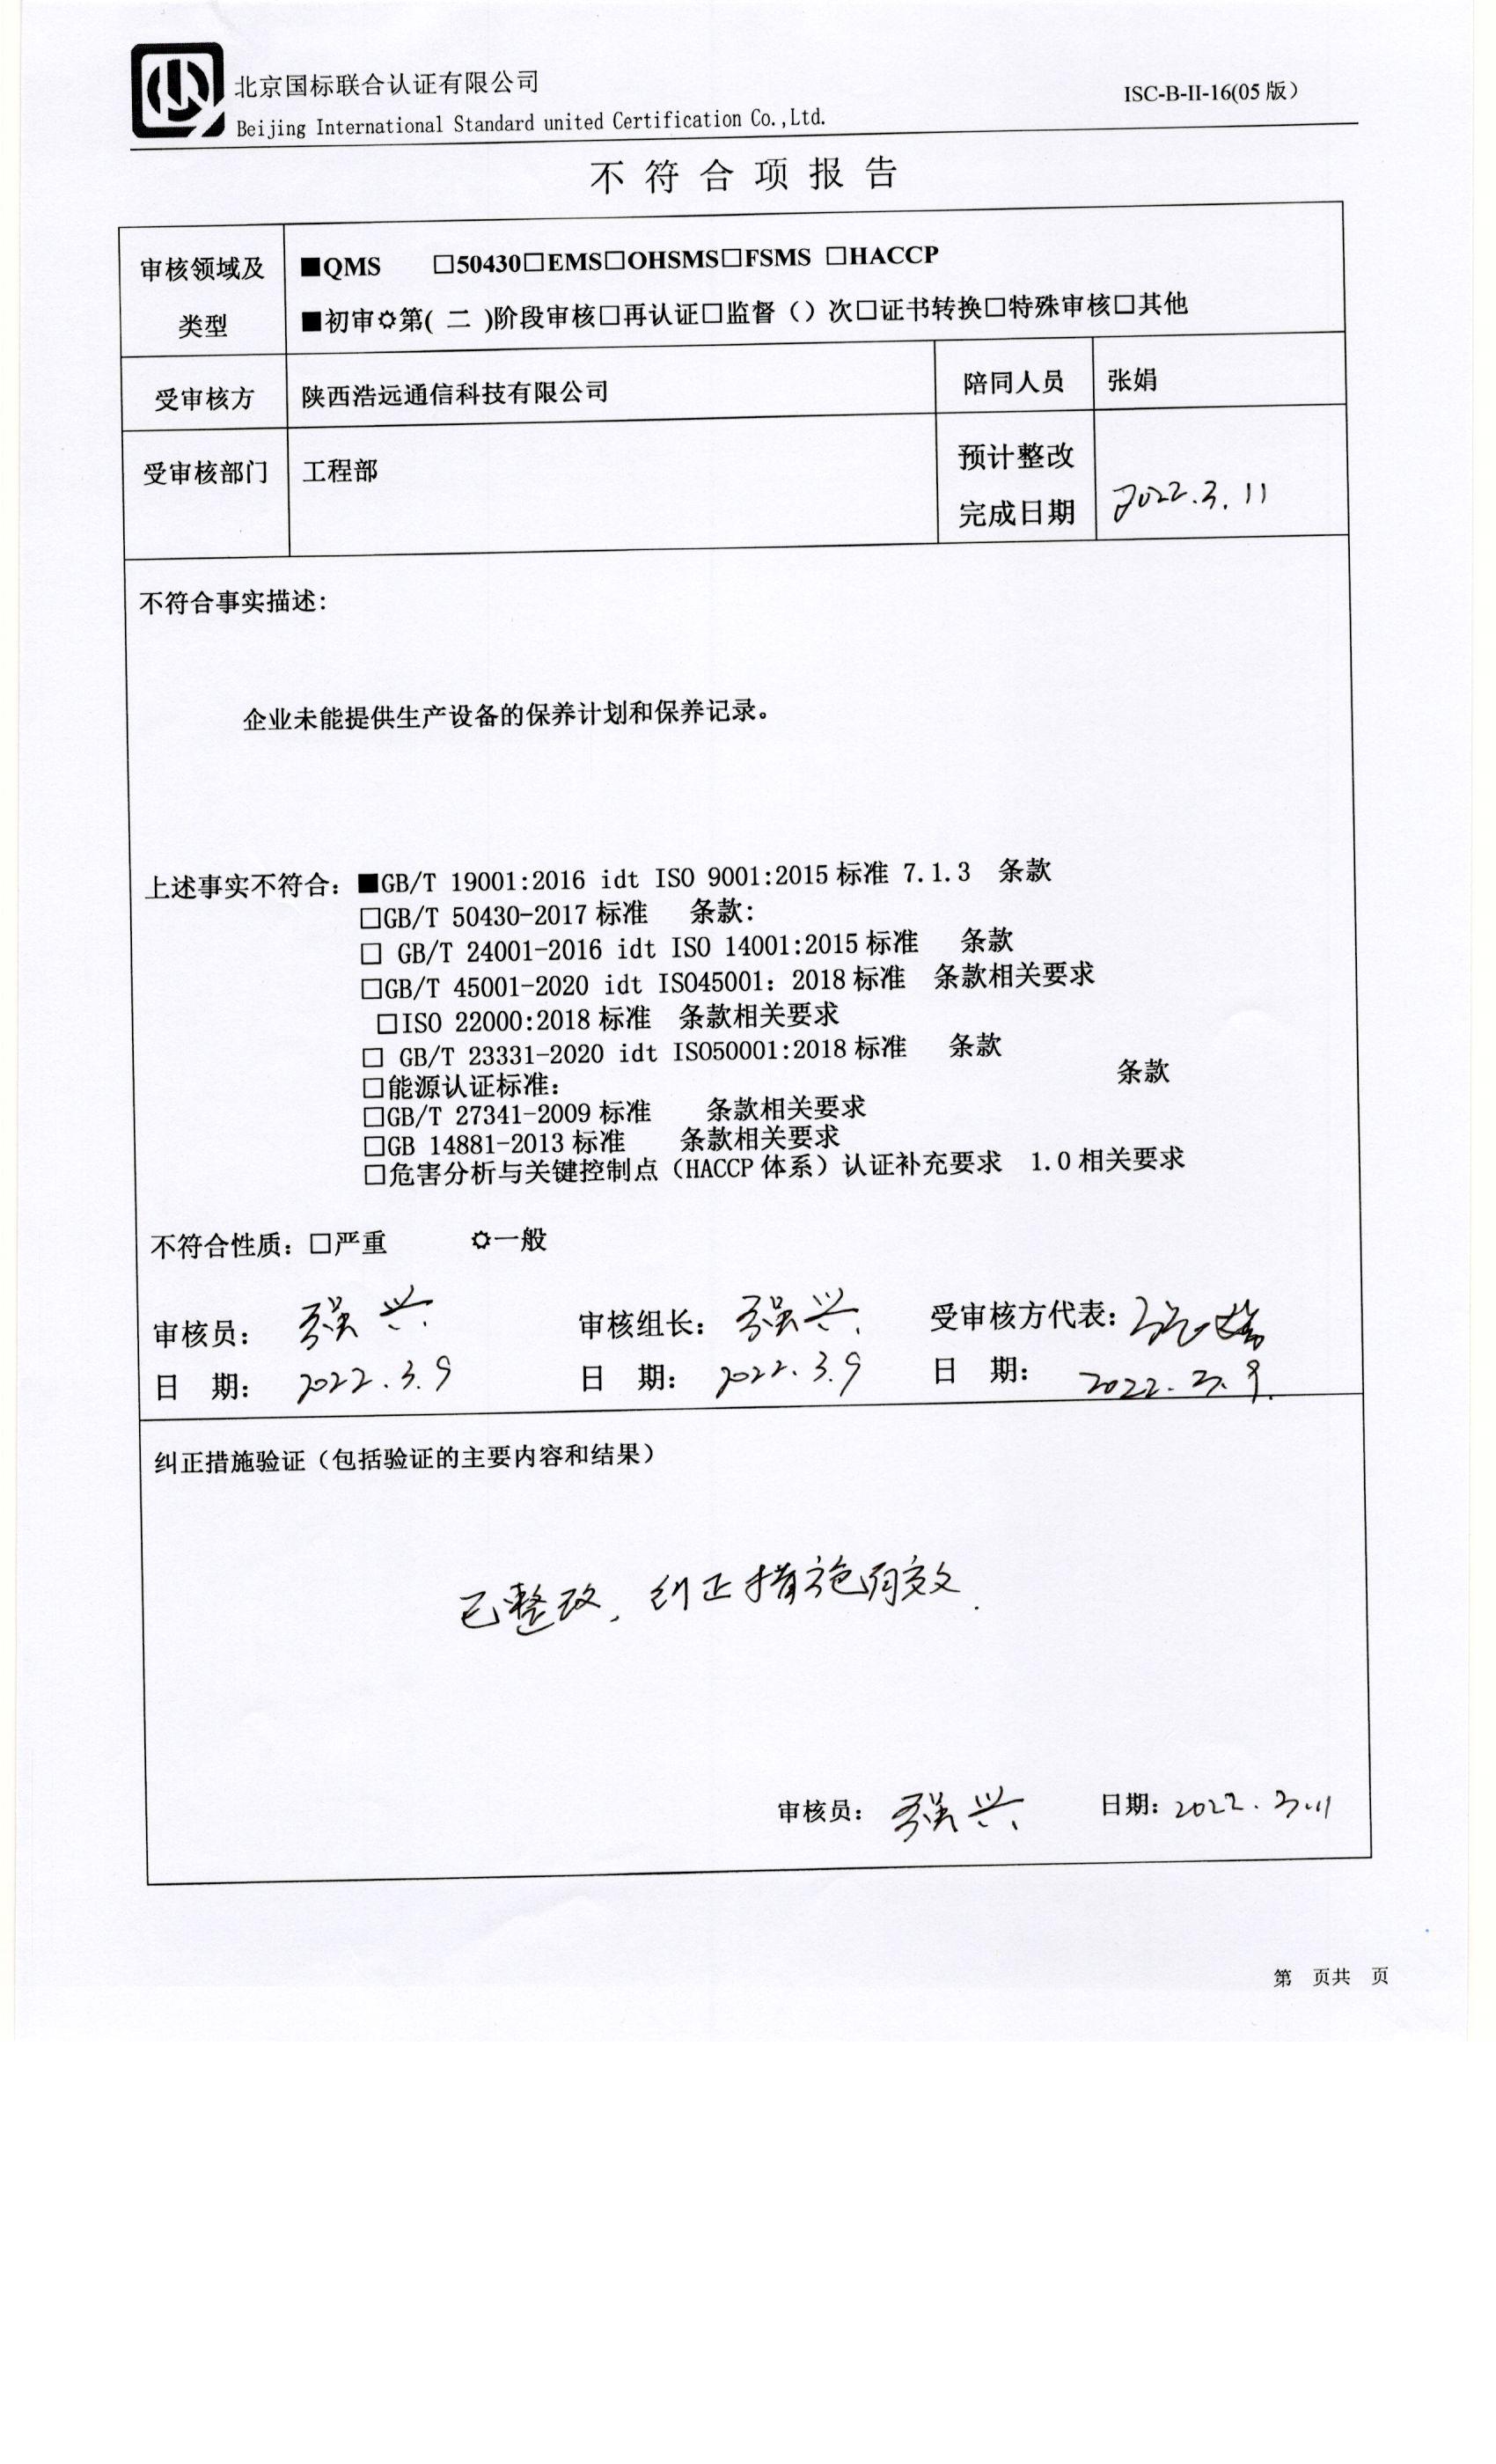 北京国标联合认证有限公司
Beijing International Standard united Certification Co.,Ltd.
ISC-B-II-16(05 版)
不符合项报告
审核领域及
类型
■QMS □50430□EMS□OHSMS□FSMS □HACCP
■初审✡第( 二 )阶段审核□再认证□监督（）次□证书转换□特殊审核□其他
受审核方
陕西浩远通信科技有限公司
陪同人员
张娟
受审核部门
工程部
预计整改
完成日期
2022.3.11
不符合事实描述:
企业未能提供生产设备的保养计划和保养记录。
上述事实不符合: ■GB/T 19001:2016 idt ISO 9001:2015 标准 7.1.3 条款
□GB/T 50430-2017 标准 条款:
□ GB/T 24001-2016 idt ISO 14001:2015 标准 条款
□GB/T 45001-2020 idt ISO45001: 2018 标准 条款相关要求
□ISO 22000:2018 标准 条款相关要求
□ GB/T 23331-2020 idt ISO50001:2018 标准 条款
□能源认证标准: 条款
□GB/T 27341-2009 标准 条款相关要求
□GB 14881-2013 标准 条款相关要求
□危害分析与关键控制点（HACCP 体系）认证补充要求 1.0 相关要求
不符合性质: □严重 ✡一般
审核员: 强兴 审核组长: 强兴 受审核方代表:
日 期: 2022.3.9 日 期: 2022.3.9 日 期: 2022.3.9.
纠正措施验证（包括验证的主要内容和结果）
已整改、纠正措施有效.
审核员: 强兴 日期: 2022.3.11
第 页共 页